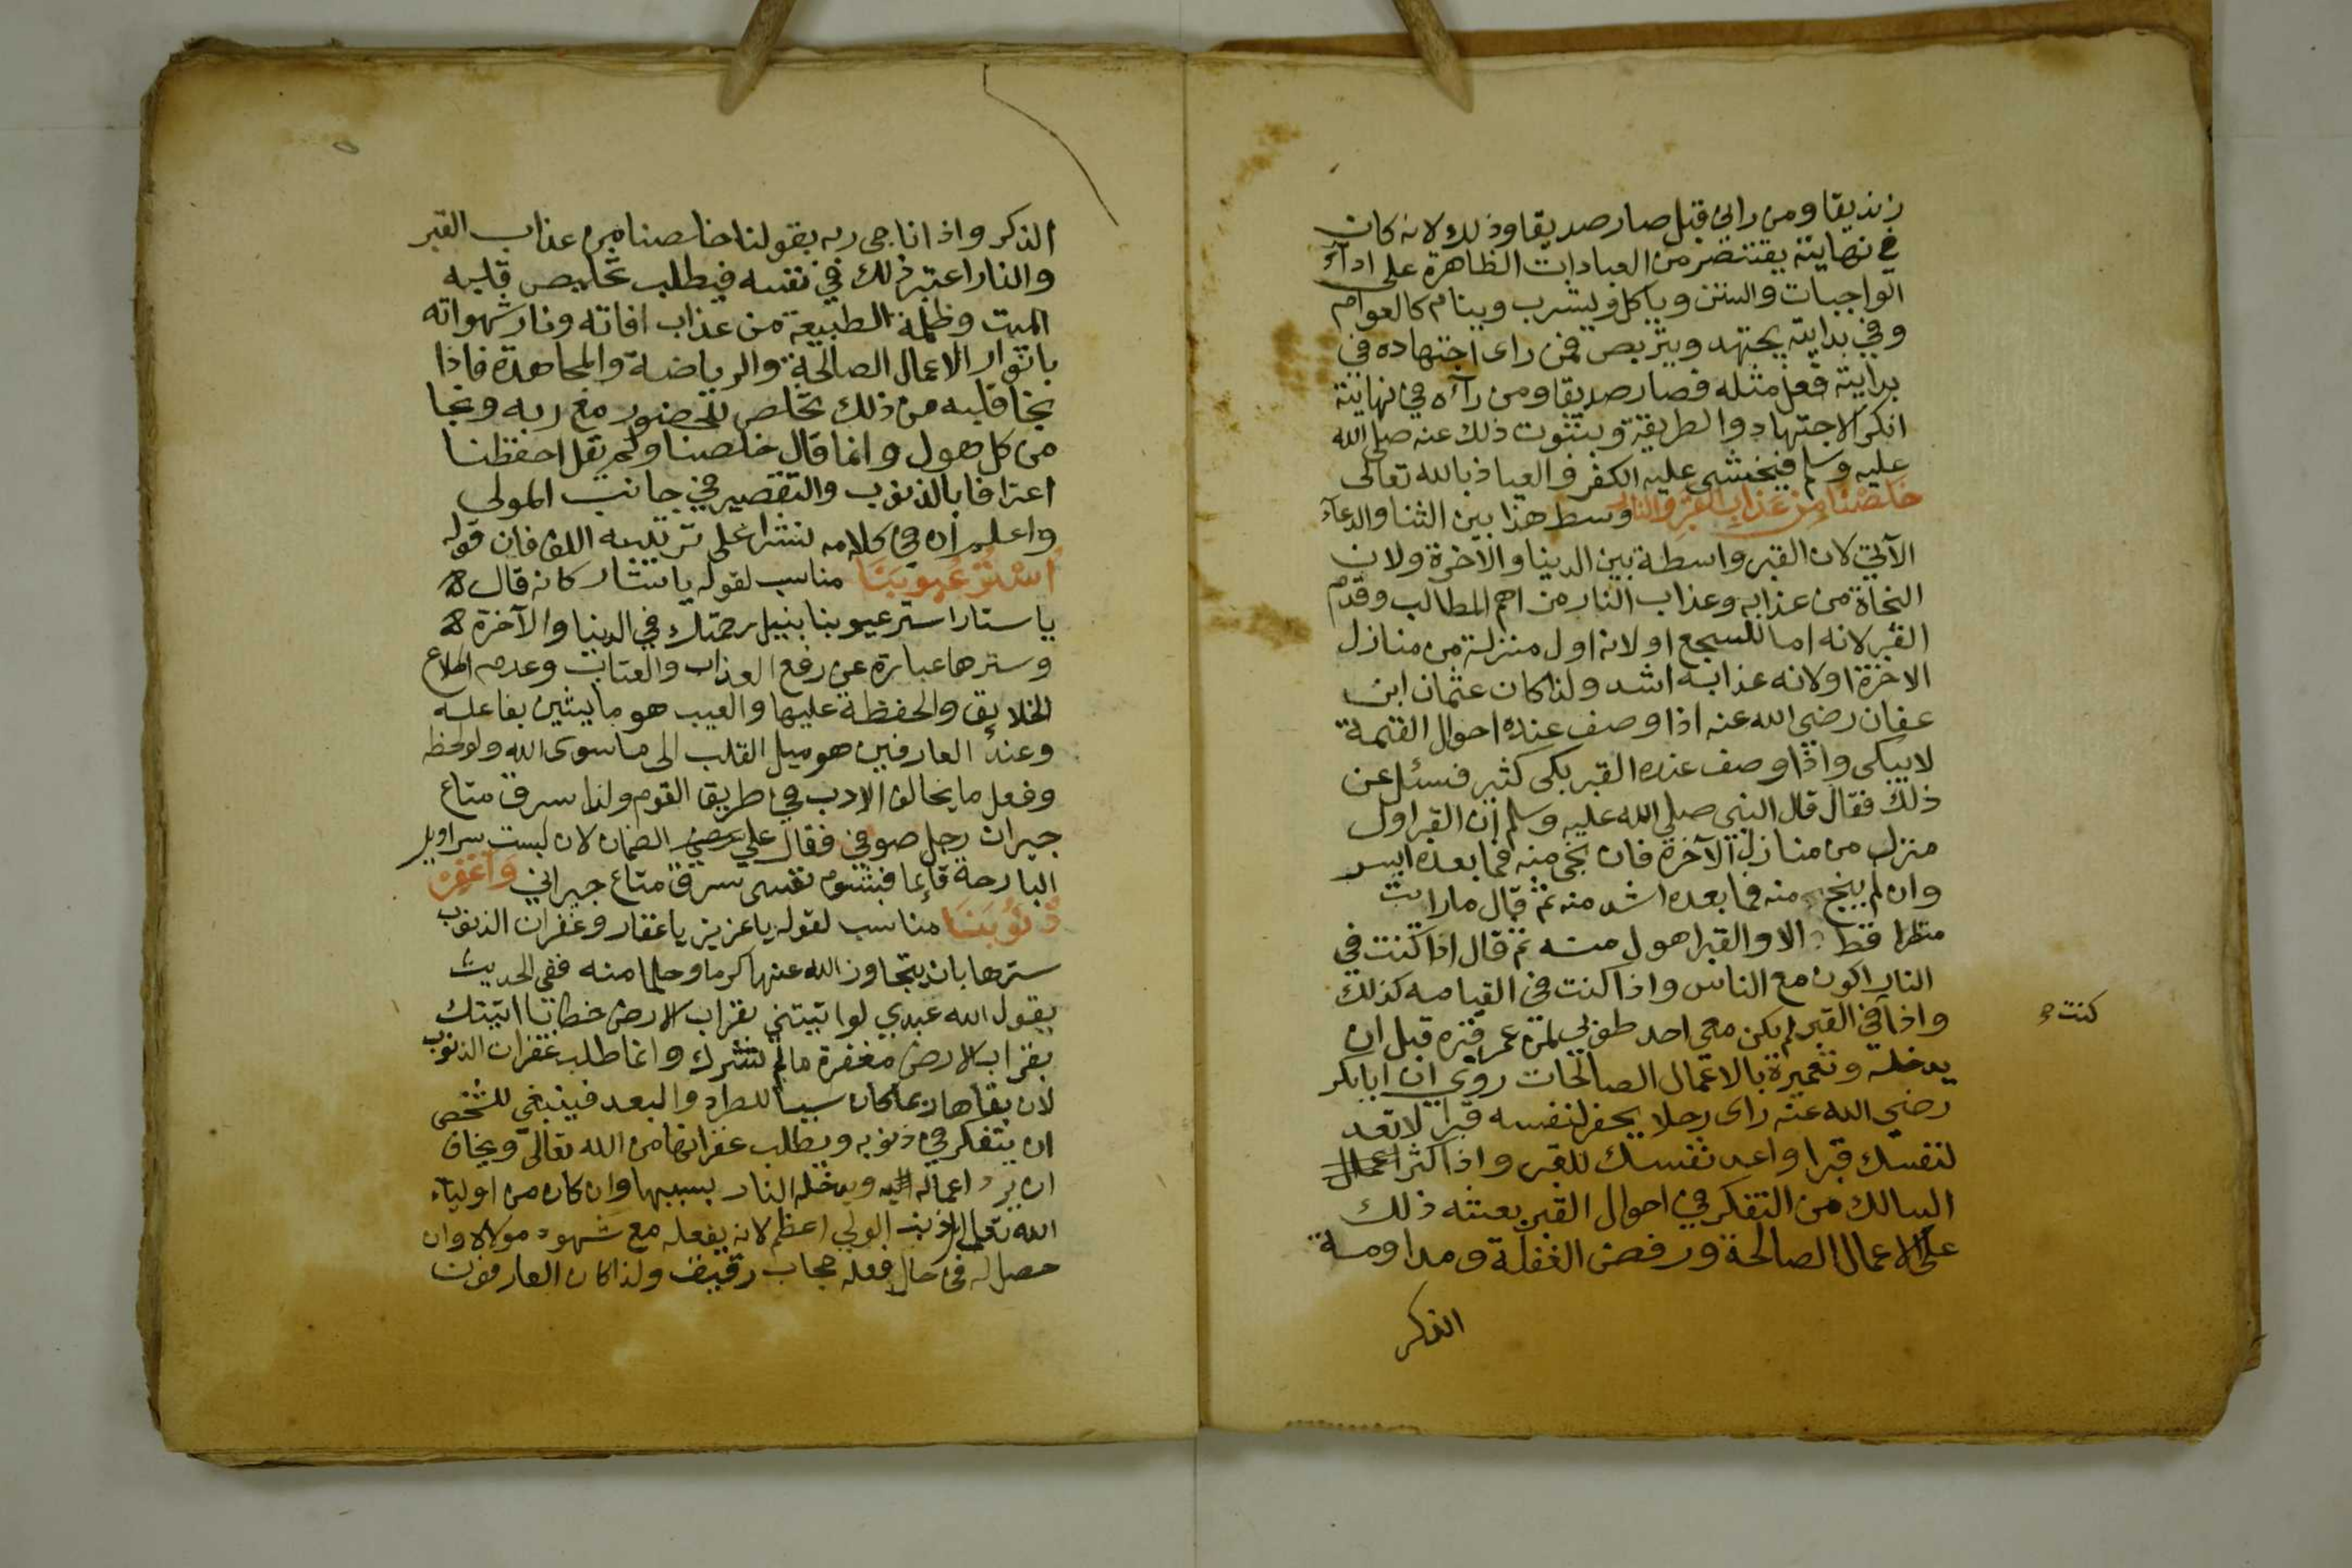 زنديقا ومن راني قبل صار صديقا وذلك لانه كان
في نهايته يقتصر من العبادات الظاهرة على ادآء
الواجبات والسنن وياكل ويشرب وينام كالعوام
وفي بدايته يجتهد ويتربص فمن راى اجتهاده في
بدايته فعل مثله فصار صديقا ومن رآه في نهايته
انكر الاجتهاد والطريقة وبثبوت ذلك عنه صلى الله
عليه وسلم فيخشى عليه الكفر والعياذ بالله تعالى
خلصنا من عذاب القبر والنار وسط هذا بين الثنا والدعآء
الآتي لان القبر واسطة بين الدنيا والاخرة ولان
النجاة من عذابه وعذاب النار من اهم المطالب وقدم
القبر لانه اما للسجع او لانه اول منزلة من منازل
الاخرة او لانه عذابه اشد ولذا كان عثمان ابن
عفان رضي الله عنه اذا وصف عنده احوال القيمة
لا يبكى واذا وصف عنده القبر بكى كثير فسئل عن
ذلك فقال قال النبي صلى الله عليه وسلم ان القبر اول
منزل من منازل الآخرة فان نجى منه فما بعده ايسر
وان لم ينج منه فما بعده اشد منه ثم قال ما رايت
منظرا قط الا والقبر اهول منه ثم قال اذا كنت في
النار اكون مع الناس واذا كنت في القيامه كذلك
واذا في القبر لم يكن معي احد طوبى لمن عمر قبره قبل ان
كنت
يدخله وتعميرة بالاعمال الصالحات روي ان ابابكر
رضي الله عنه راى رجلا يحفر لنفسه قبرا لا تعد
لنفسك قبرا واعد نفسك للقبر واذا اكثر اعمال
السالك من التفكر في احوال القبر بعثه ذلك
على الاعمال الصالحة ورفض الغفلة ومداومة
الذكر
الذكر واذا ناجى ربه بقولنا خلصنا من عذاب القبر
والنار اعتبر ذلك في نفسه فيطلب تخليص قلبه
الميت وظلمة الطبيعة من عذاب افاته ونار شهواته
بانوار الاعمال الصالحة والرياضة والمجاهدة فاذا
نجا قلبه من ذلك تخلص للحضور مع ربه ونجا
من كل هول وانما قال خلصنا ولم يقل احفظنا
اعترافا بالذنوب والتقصير في جانب المولى
واعلم ان في كلامه نشرا على ترتيب اللف فان قوله
استر عيوبنا مناسب لقوله يا ستار كانه قال
يا ستار استر عيوبنا بنيل رحمتك في الدنيا والآخرة
وسترها عبارة عن رفع العذاب والعتاب وعدم اطلاع
الخلايق والحفظة عليها والعيب هو ما يشين بفاعله
وعند العارفين هو ميل القلب الى ما سوى الله ولو لحظه
وفعل ما يخالف الادب في طريق القوم ولذا سرق متاع
جيران رجل صوفي فقال علي الضمان لان لبست سراويل
البارحة قايما فبشوم نفسى سرق متاع جيراني واغفر
ذنوبنا مناسب لقوله يا عزيز يا غفار وغفران الذنوب
سترها بان يتجاوز الله عنها كرما وحلما منه ففي الحديث
يقول الله عبدي لو اتيتني بقراب الارض خطايا اتيتك
بقراب الارض مغفرة ما لم تشرك وانما طلب غفران الذنوب
لان بقاها ربما كان سببا للطرد والبعد فينبغي للشخص
ان يتفكر في ذنوبه ويطلب غفرانها من الله تعالى ويخاف
ان يرد اعماله اليه ويدخله النار بسببها وان كان من اولياء
الله تعالى اذ ذنب الولي اعظم لانه يفعله مع شهود مولاه وان
حصل له في حال فعله حجاب رقيق ولذا كان العارفون